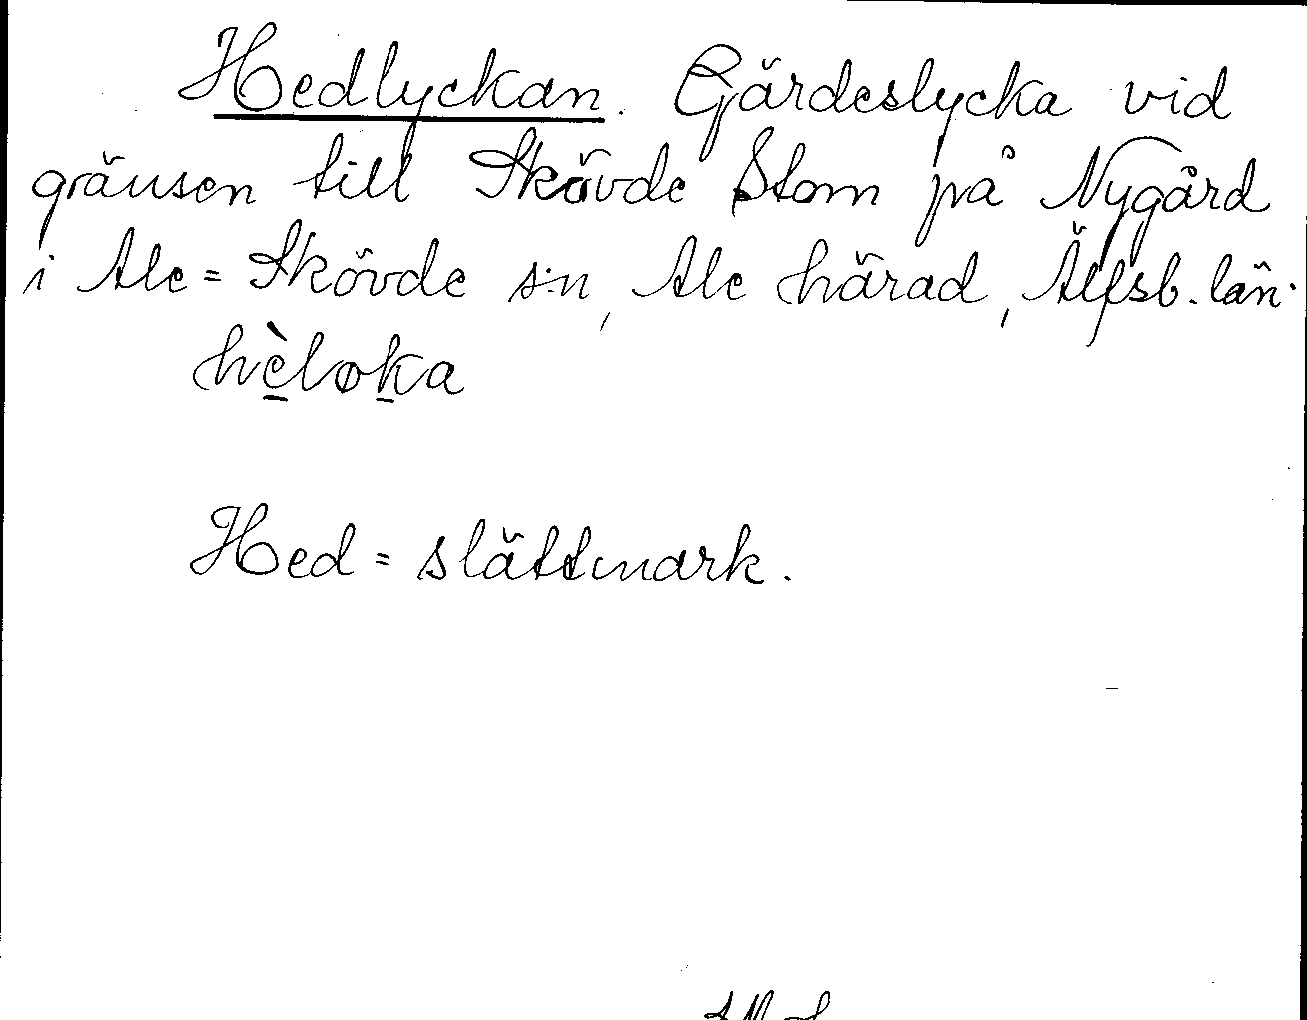 Hedlyckan. Gärdeslycka vid
gränsen till Skövde Stom på Nygård
i Ale=Skövde s:n, Ale härad, Älfsb. län.
hèløka
Hed = slättmark.